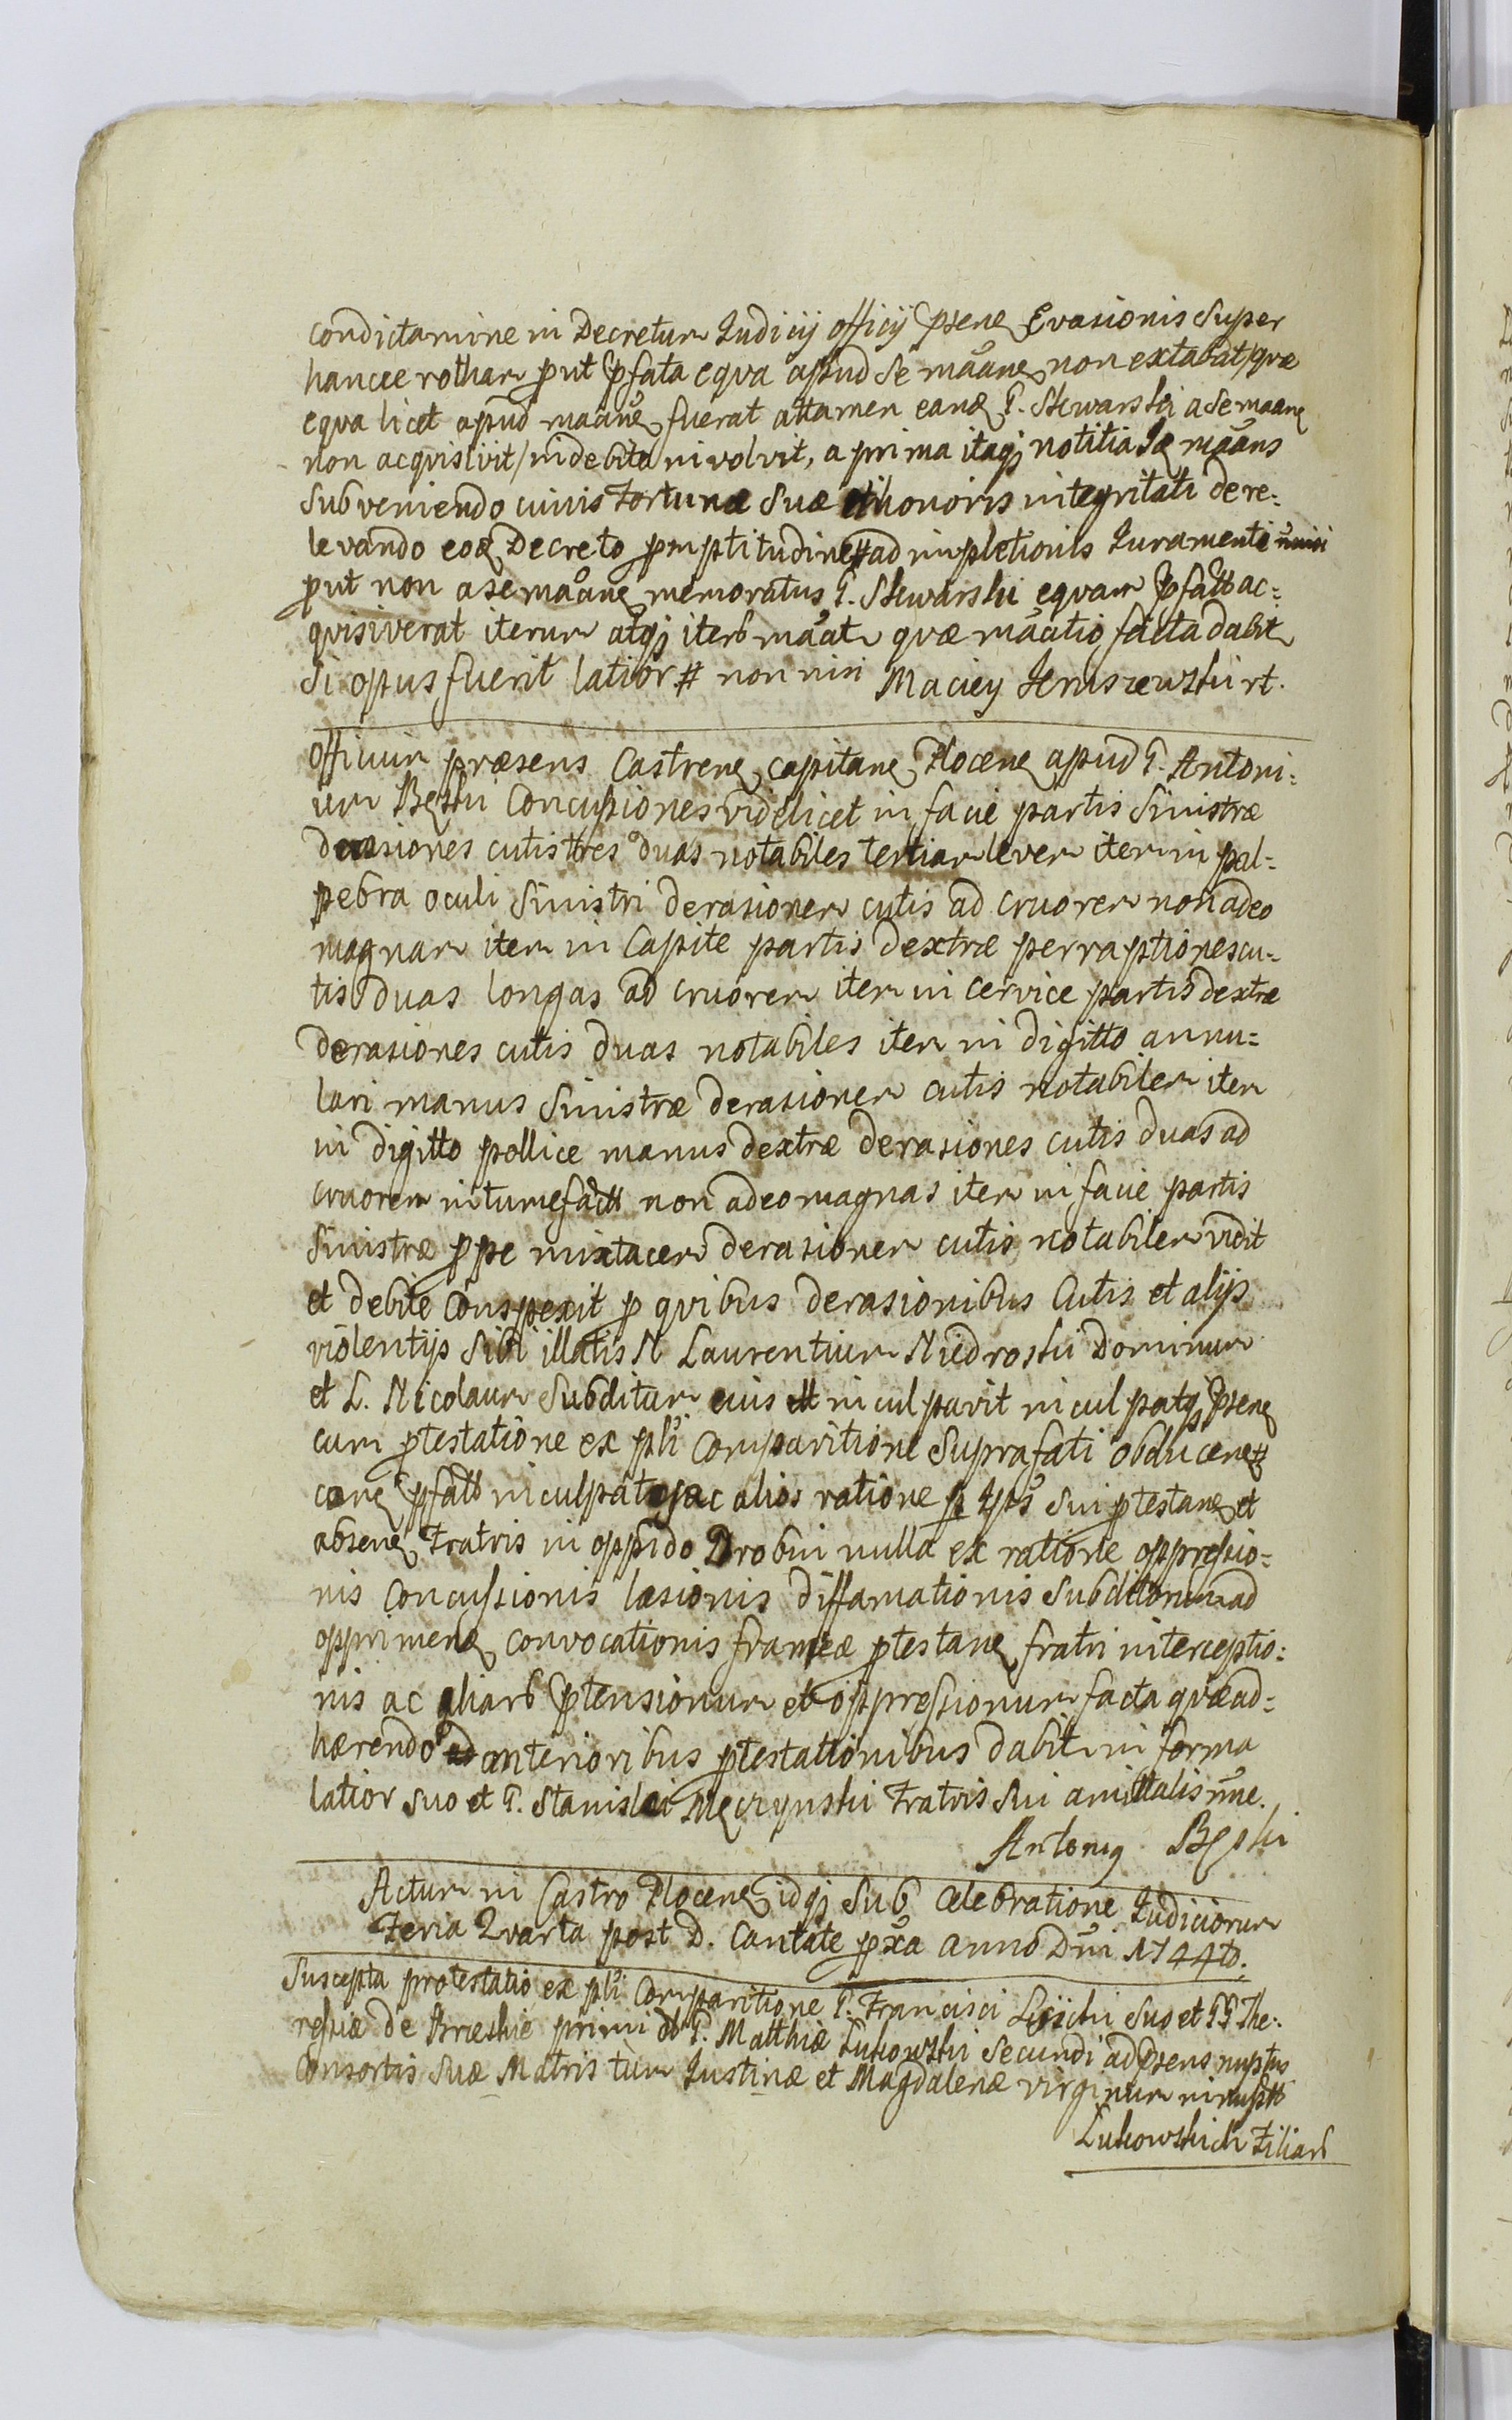 condictamine in Decretum Iudicij officij psene Evasionis Super
hancce rotham put pfata eqva apud Se maane non extabat/qvæ
eqva licet apud maane fuerat attamen eand P. Skwarski a Se maane
non acqvisivit/indebite involvit, a prima itaqj notitia Se maans
Subveniendo cuivis Fortunæ Suæ et honoris integritati de re-
levando eod Decreto pmptitudine ad impletionis Iuramenti
put non a Se maane memoratus P. Skwarski eqvam pfatt ac-
qvisiverat iterum atqj iterb maat qvæ maatio facta dabit
Si opus fuerit latior # non nisi Maciey rt.
Officium præsens Castrene capitane Plocene apud P. Antoni-
um Bęski Concussiones videlicet in facie partis Sinistræ
derasiones cutis tres duas notabiles tertiam levem item in pal-
pebra oculi Sinistri derasionem cutis ad cruorem non adeo
magnam item in Capite partis dextræ perraptiones cu-
tis duas longas ad cruorem item in cervice partis dextræ
derasiones cutis duas notabiles item in digitto annu-
lari manus Sinistræ derasionem cutis notabilem item
in digitto pollice manus dextræ derasiones cutis duas ad
cruorem intumefactt non adeo magnas item in facie partis
Sinistræ ppe mistacem derasionem cutis notabilem vidit
et debite Conspexit p qvibus derasionibus Cutis et alijs
violentijs Sibi illatis N Laurentium Niedroski Dominum
et L. Nicolaum Subditum eius inculpavit inculpatqj psene
cum ptestatione ex pli Comparitione Suprafati obducene
cone pfatt inculpatos ac alios ratione Sui ptestane et
absene Fratris in oppido Drobin nulla ex ratione oppressio-
nis Concussionis læsionis diffamationis Subditorum ad
opprimend convocationis frameæ ptestane fratri interceptio-
nis ac aliarb ptensionum et oppressionum facta qvæ ad-
hærendo anterioribus ptestationibus dabit in forma
latior Suo et P. Stanislai Męczynski Fratris Sui amittalis nne.
Antony Bęski
Actum in Castro Plocene idqj Sub Celebratione Iudiciorum
Feria Qvarta post D. Cantate pxa anno Dni 1744to.
Suscepta protestatio ex pli Comparitione P. Francisci Suo et PP The-
resiæ de Brzeskie primi P. Matthiæ Łukowski Secundi ad psens nuptus
Consortis Suæ Matris tum Iustinæ et Magdalenæ virginum innuptt
Łukowskich Filiarb